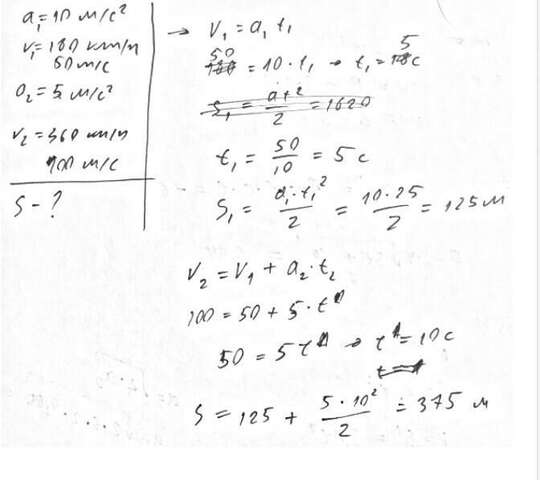 a₁=10 м/с²
v₁=180 км/ч
50 м/с
a₂=5 м/с²
v₂=360 км/ч
100 м/с
S-?
→ V₁=a₁t₁
50=10·t₁ → t₁=5с
S₁=at²/2=1620
t₁=50/10=5с
S₁=a₁·t₁²/2=10·25/2=125м
V₂=V₁+a₂·t₂
100=50+5·t
50=5t → t=10с
S=125+5·10²/2=375 м